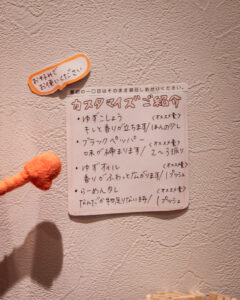 お好みで
お使いください
最初の一口目はそのままお召し上がりください。
カスタマイズご紹介
・ゆずこしょう (オススメ量)
キレと香りが立ちます/ほんの少し
・ブラックペッパー (オススメ量)
味が締まります/2〜3振り
・ゆずオイル (オススメ量)
香りがふわっと広がります/1プッシュ
・らーめんタレ (オススメ量)
なんだか物足りない時/1プッシュ